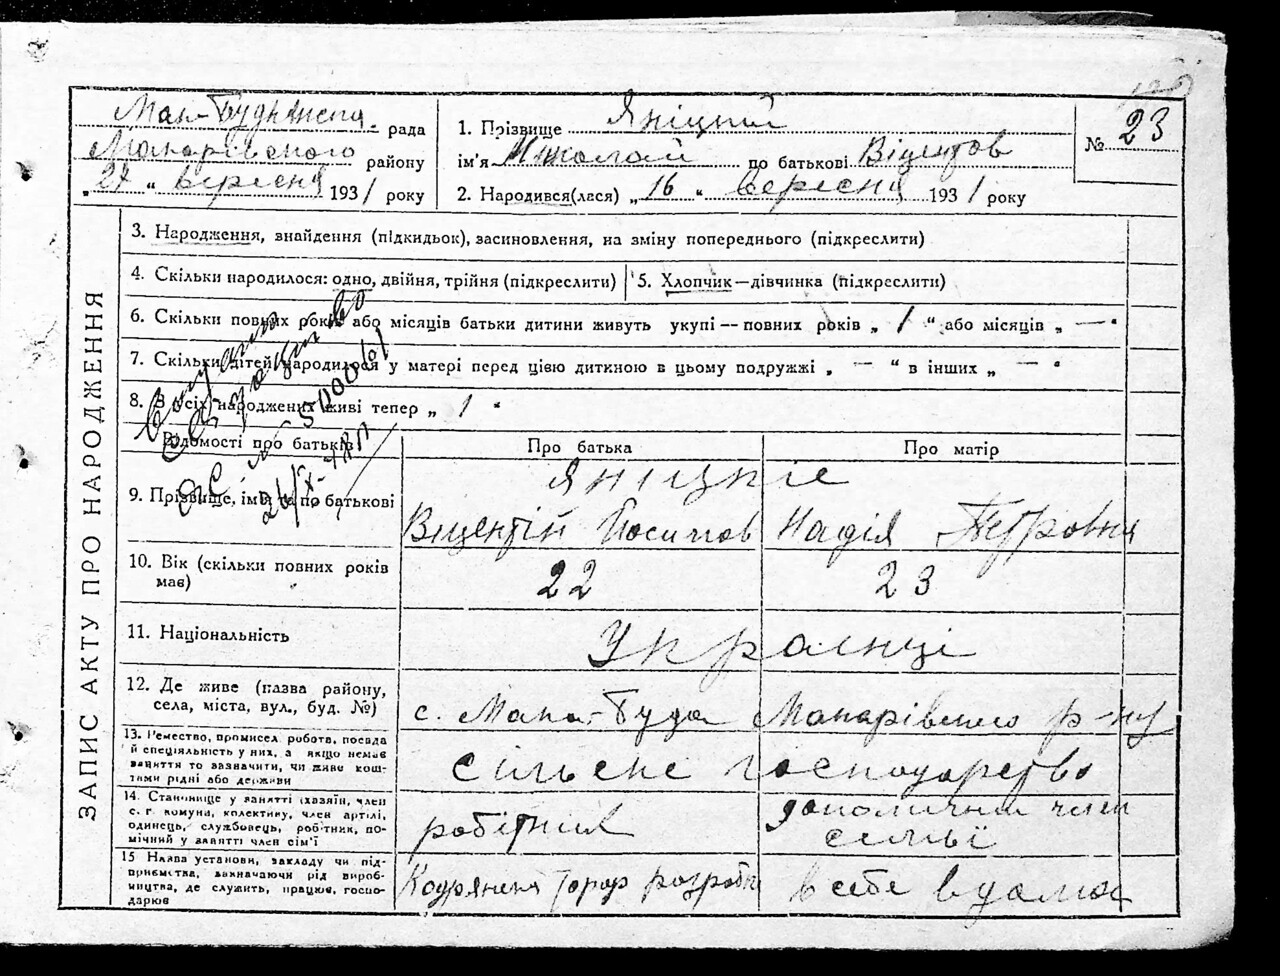 Мак-Буднянска рада
Макарівського району
„27“ вересня 1931 року
1. Прізвище Яніцкий
ім'я Миколай по батькові Віцентов
2. Народився(лася) „16“ вересня 1931 року
№ 23
ЗАПИС АКТУ ПРО НАРОДЖЕННЯ
3. Народження, знайдення (підкидьок), засиновлення, на зміну попереднього (підкреслити)
4. Скільки народилося: одно, двійня, трійня (підкреслити)
5. Хлопчик—дівчинка (підкреслити)
6. Скільки повних років або місяців батьки дитини живуть укупі—повних років „ 1 “ або місяців „ — “
7. Скільки дітей народилося у матері перед цією дитиною в цьому подружжі „ — “ в інших „ — “
8. З усіх народжених живі тепер „ 1 “
Відомості про батьків
Про батька
Про матір
9. Прізвище, ім'я та по батькові
Яніцкіе
Віцентій Йосипов
Надія Петровна
10. Вік (скільки повних років
мав)
22
23
11. Національність
Украінці
12. Де живе (назва району,
села, міста, вул., буд. №)
с. Мак-Буда Макарівского р-ну
13. Ремество, промисел, робота, посада
й спеціяльність у них, а якщо немає
заняття то зазначити, чи живе кош-
тами рідні або держави
сільске господарство
14. Становище у занятті (хазяїн, член
с. г. комуни, колективу, член артілі,
одинець, службовець, робітник, по-
мічний у занятті член сім'ї
робітник
член
семьї
15 Назва установи, закладу чи під-
приємства, зазначаючи рід вироб-
ництва, де служить, працює, госпо-
дарює
Торф
в себе вдома